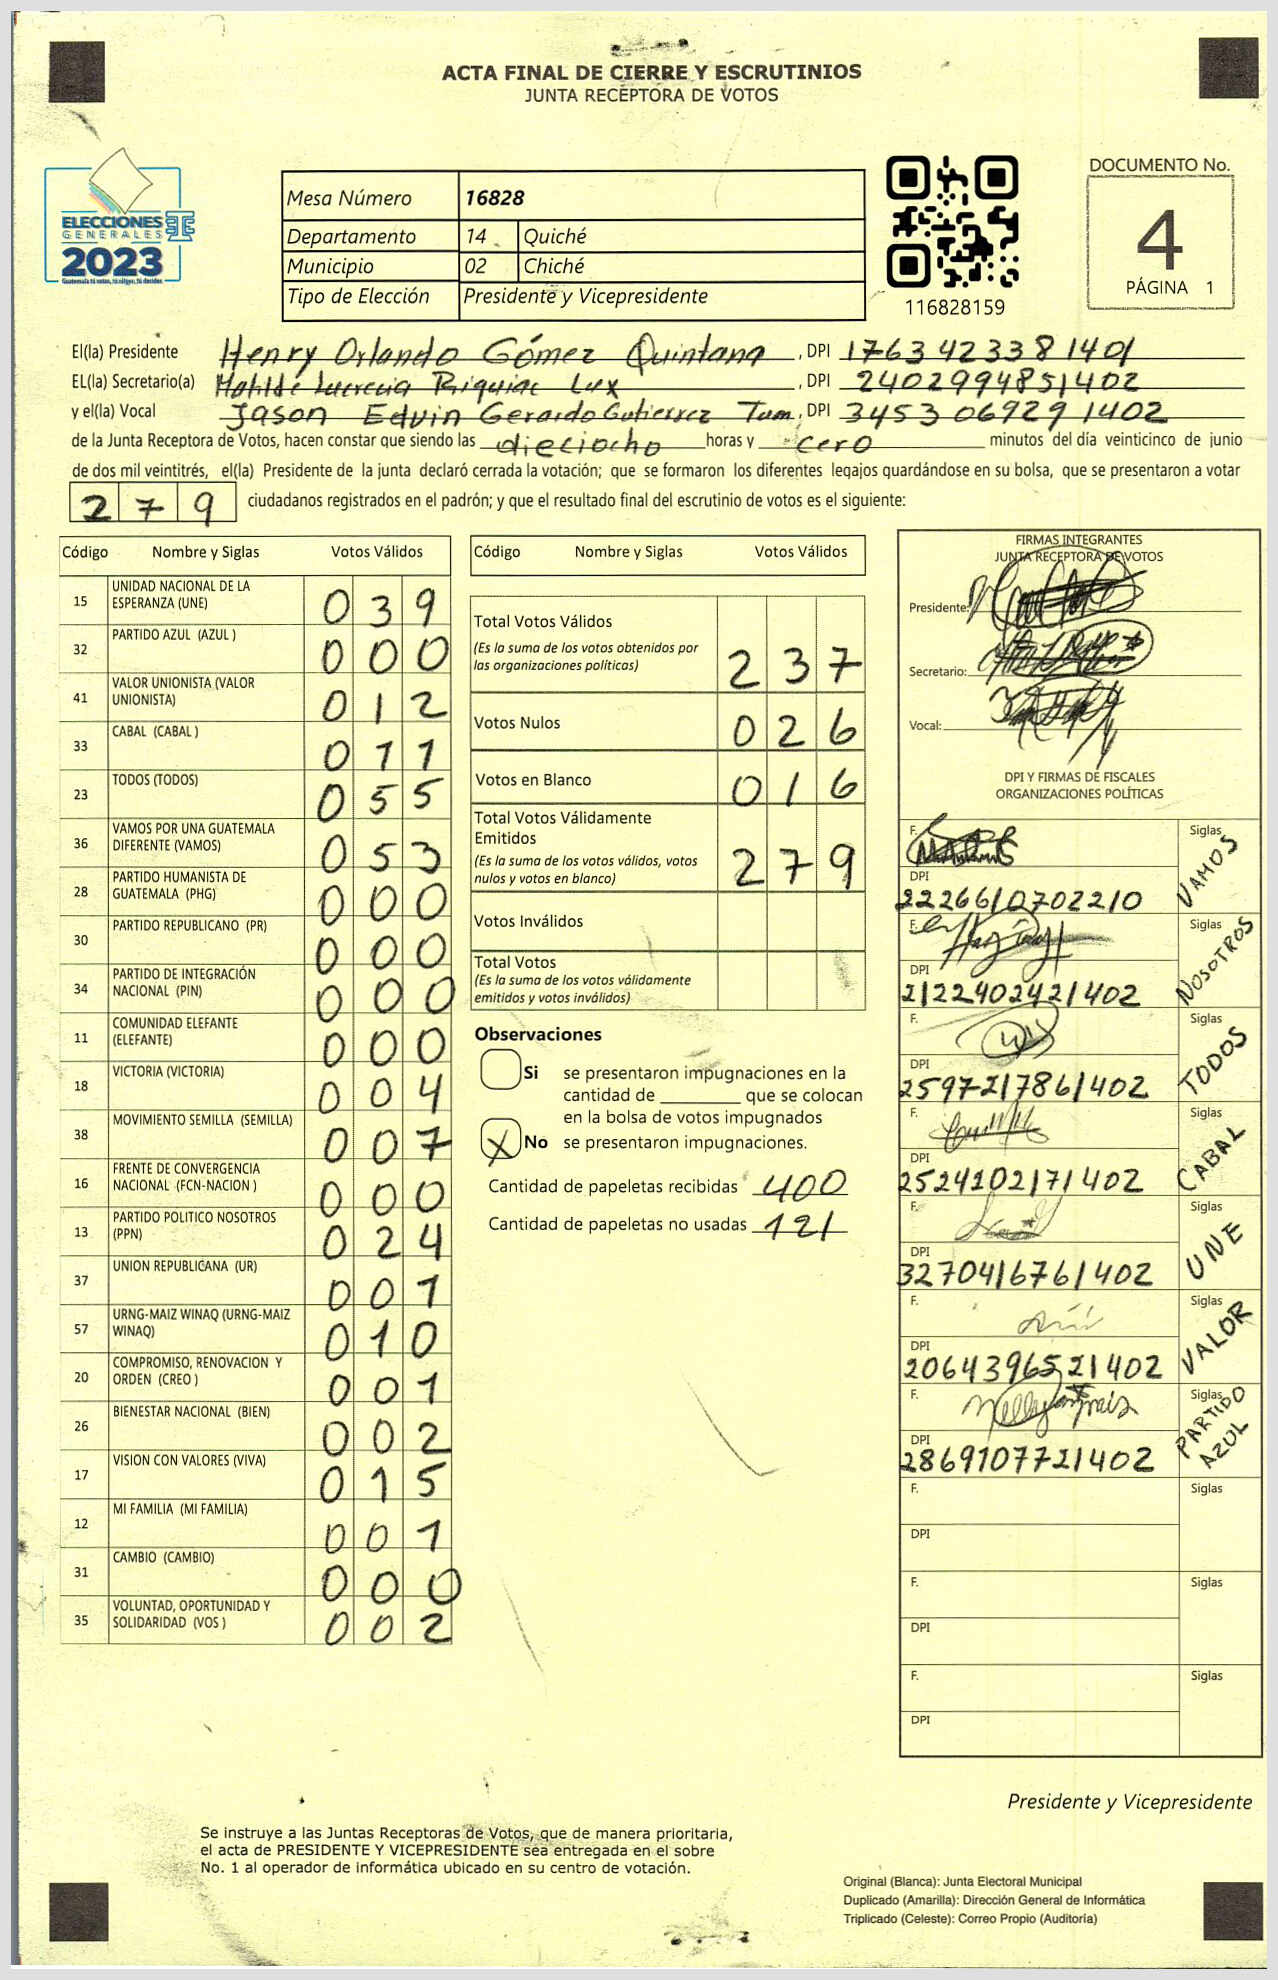 ACTA FINAL DE CIERRE Y ESCRUTINIOS
JUNTA RECEPTORA DE VOTOS
ELECCIONES
GENERALES
2023
Guatemala tú votas, tú eliges, tú decides
Mesa Número 16828
Departamento 14 Quiché
Municipio 02 Chiché
Tipo de Elección Presidente y Vicepresidente
116828159
DOCUMENTO No.
4
PÁGINA 1
El(la) Presidente Henry Orlando Gómez Quintana, DPI 1763423381401
EL(la) Secretario(a) Matilde Lucrecia Riquiac Lux, DPI 2402994851402
y el(la) Vocal Jason Edvin Gerardo Gutierrez Tum, DPI 3453069291402
de la Junta Receptora de Votos, hacen constar que siendo las dieciocho horas y cero minutos del día veinticinco de junio
de dos mil veintitrés, el(la) Presidente de la junta declaró cerrada la votación; que se formaron los diferentes legajos guardándose en su bolsa, que se presentaron a votar
279 ciudadanos registrados en el padrón; y que el resultado final del escrutinio de votos es el siguiente:
Código Nombre y Siglas Votos Válidos
15 UNIDAD NACIONAL DE LA ESPERANZA (UNE) 039
32 PARTIDO AZUL (AZUL ) 000
41 VALOR UNIONISTA (VALOR UNIONISTA) 012
33 CABAL (CABAL ) 011
23 TODOS (TODOS) 055
36 VAMOS POR UNA GUATEMALA DIFERENTE (VAMOS) 053
28 PARTIDO HUMANISTA DE GUATEMALA (PHG) 000
30 PARTIDO REPUBLICANO (PR) 000
34 PARTIDO DE INTEGRACIÓN NACIONAL (PIN) 000
11 COMUNIDAD ELEFANTE (ELEFANTE) 000
18 VICTORIA (VICTORIA) 004
38 MOVIMIENTO SEMILLA (SEMILLA) 007
16 FRENTE DE CONVERGENCIA NACIONAL (FCN-NACION ) 000
13 PARTIDO POLITICO NOSOTROS (PPN) 024
37 UNION REPUBLICANA (UR) 001
57 URNG-MAIZ WINAQ (URNG-MAIZ WINAQ) 010
20 COMPROMISO, RENOVACION Y ORDEN (CREO ) 001
26 BIENESTAR NACIONAL (BIEN) 002
17 VISION CON VALORES (VIVA) 015
12 MI FAMILIA (MI FAMILIA) 001
31 CAMBIO (CAMBIO) 000
35 VOLUNTAD, OPORTUNIDAD Y SOLIDARIDAD (VOS ) 002
Código Nombre y Siglas Votos Válidos
Total Votos Válidos
(Es la suma de los votos obtenidos por
las organizaciones políticas) 237
Votos Nulos 026
Votos en Blanco 016
Total Votos Válidamente
Emitidos
(Es la suma de los votos válidos, votos
nulos y votos en blanco) 279
Votos Inválidos
Total Votos
(Es la suma de los votos válidamente
emitidos y votos inválidos)
Observaciones
Si se presentaron impugnaciones en la
cantidad de ________ que se colocan
en la bolsa de votos impugnados
X No se presentaron impugnaciones.
Cantidad de papeletas recibidas 400
Cantidad de papeletas no usadas 121
FIRMAS INTEGRANTES
JUNTA RECEPTORA DE VOTOS
Presidente:
Secretario:
Vocal:
DPI Y FIRMAS DE FISCALES
ORGANIZACIONES POLÍTICAS
F. Siglas VAMOS
DPI
2226610702210
F. Siglas NOSOTROS
DPI
2122402421402
F. Siglas TODOS
DPI
2597217861402
F. Siglas CABAL
DPI
2524102171402
F. Siglas UNE
DPI
3270416761402
F. Siglas VALOR
DPI
2064396521402
F. Siglas PARTIDO AZUL
DPI
2869107721402
F. Siglas
DPI
F. Siglas
DPI
F. Siglas
DPI
Presidente y Vicepresidente
Se instruye a las Juntas Receptoras de Votos, que de manera prioritaria,
el acta de PRESIDENTE Y VICEPRESIDENTE sea entregada en el sobre
No. 1 al operador de informática ubicado en su centro de votación.
Original (Blanca): Junta Electoral Municipal
Duplicado (Amarilla): Dirección General de Informática
Triplicado (Celeste): Correo Propio (Auditoría)